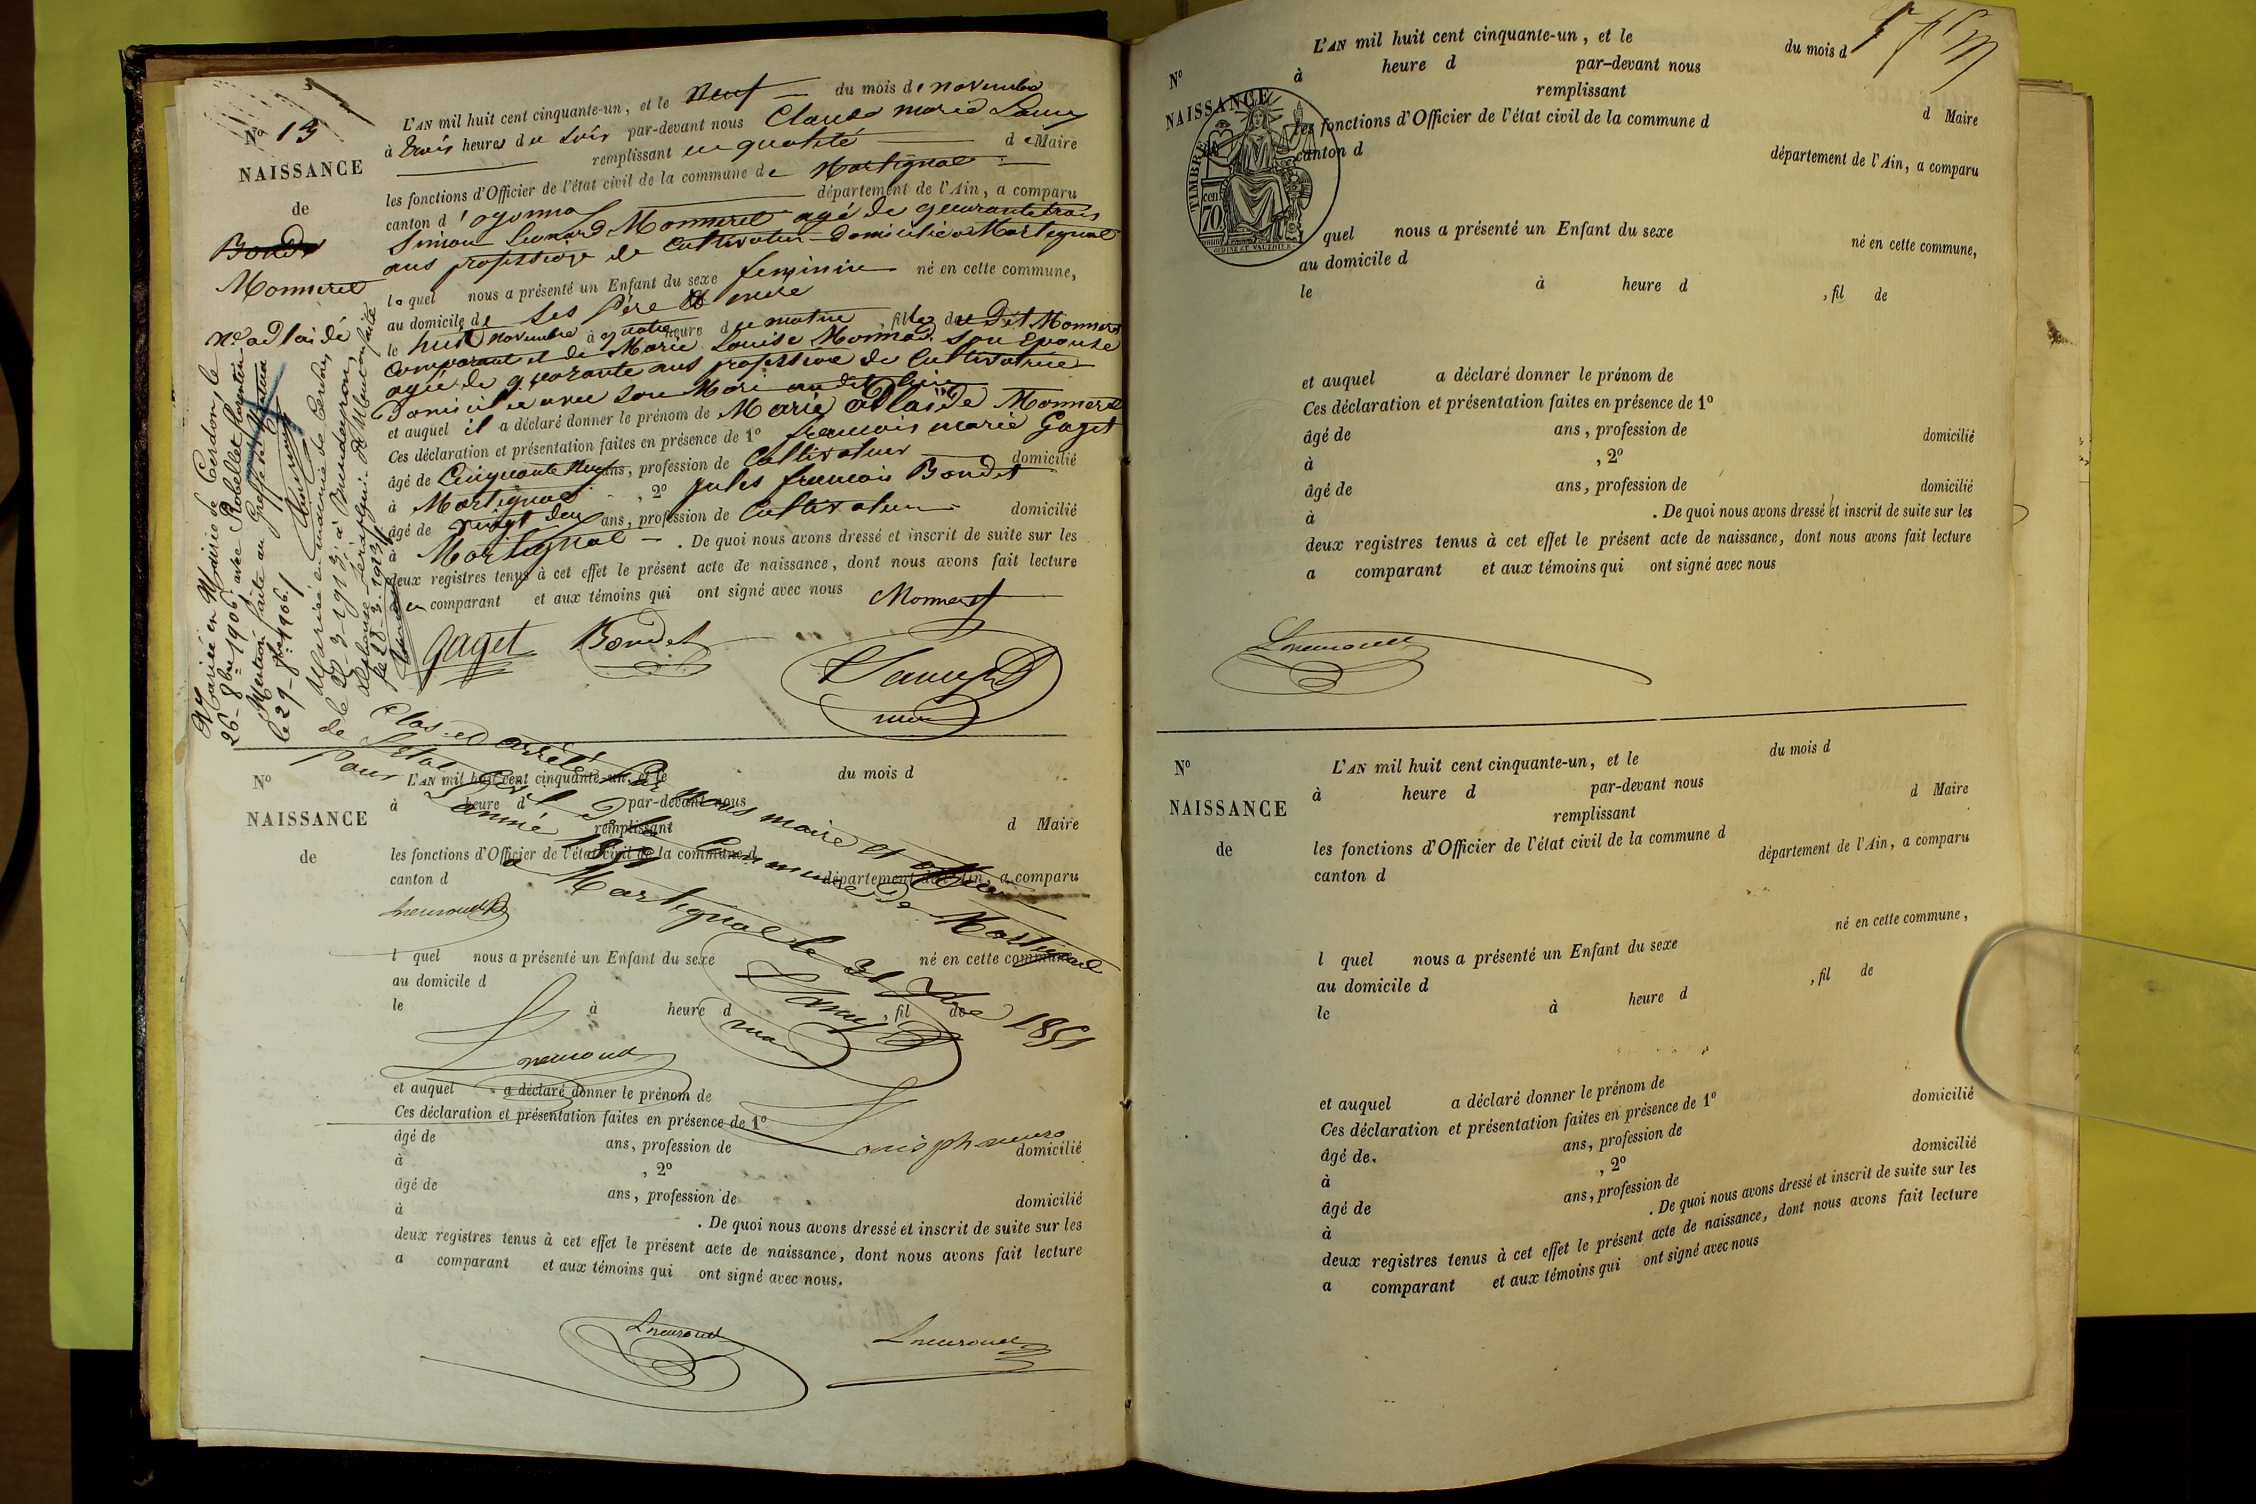 N° 13
NAISSANCE
de
Bondet
Monneret
Mie adlaïde
L'AN mil huit cent cinquante-un, et le neuf du mois de novembre
à trois heures du soir par-devant nous Claude marie
remplissant en qualité de Maire
les fonctions d'Officier de l'état civil de la commune de Martignat
canton d'oyonnax département de l'Ain, a comparu
Simon Leonard Monneret agé de quarante trois
ans profession de Cultivateur domicilié à Martignat
lequel nous a présenté un Enfant du sexe feminin né en cette commune,
au domicile de ses père et mère
le huit novembre à quatre heure du matin, fille du dit Monneret
Comparant et de Marie Louise son Epouse
agée de quarante ans profession de Cultivatrice
Domiciliée avec son Mari
et auquel il a déclaré donner le prénom de Marie adlaïde Monneret
Ces déclaration et présentation faites en présence de 1° francois marie Gaget
âgé de Cinquante neuf ans, profession de Cultivateur domicilié
à Martignat, 2° jules francois Bondet
âgé de vingt deux ans, profession de Cultivateur domicilié
à Martignat. De quoi nous avons dressé et inscrit de suite sur les
deux registres tenus à cet effet le présent acte de naissance, dont nous avons fait lecture
au comparant et aux témoins qui ont signé avec nous
Monneret
gaget Bondet
Mariée en Mairie de Cerdon, le
26 - 8bre 1906, avec Robellet
Mention faite au Greffe
le 29 - 8bre 1906.
Mariée en mairie de Cerdon
le 22-3-1913, à
le 28-3-1913
Clos et arrêté par nous maire et officier
de l'Etat Civil de la Commune de Martignat
Pour l'année 1851
a Martignat le 31 Xbre 1851
N°
NAISSANCE
de
L'AN mil huit cent cinquante-un, et le du mois d
à heure d par-devant nous
remplissant d Maire
les fonctions d'Officier de l'état civil de la commune d
canton d département de l'Ain, a comparu
l quel nous a présenté un Enfant du sexe né en cette commune,
au domicile d
le à heure d , fil de
et auquel a déclaré donner le prénom de
Ces déclaration et présentation faites en présence de 1°
âgé de ans, profession de domicilié
à , 2°
âgé de ans, profession de domicilié
à . De quoi nous avons dressé et inscrit de suite sur les
deux registres tenus à cet effet le présent acte de naissance, dont nous avons fait lecture
a comparant et aux témoins qui ont signé avec nous.
N°
NAISSANCE
TIMBRE
70 cen
L'AN mil huit cent cinquante-un, et le du mois d
à heure d par-devant nous
remplissant d Maire
les fonctions d'Officier de l'état civil de la commune d
canton d département de l'Ain, a comparu
quel nous a présenté un Enfant du sexe né en cette commune,
au domicile d
le à heure d , fil de
et auquel a déclaré donner le prénom de
Ces déclaration et présentation faites en présence de 1°
âgé de ans, profession de domicilié
à , 2°
âgé de ans, profession de domicilié
à . De quoi nous avons dressé et inscrit de suite sur les
deux registres tenus à cet effet le présent acte de naissance, dont nous avons fait lecture
a comparant et aux témoins qui ont signé avec nous
N°
NAISSANCE
de
L'AN mil huit cent cinquante-un, et le du mois d
à heure d par-devant nous
remplissant d Maire
les fonctions d'Officier de l'état civil de la commune d
canton d département de l'Ain, a comparu
l quel nous a présenté un Enfant du sexe né en cette commune,
au domicile d
le à heure d , fil de
et auquel a déclaré donner le prénom de
Ces déclaration et présentation faites en présence de 1°
âgé de. ans, profession de domicilié
à , 2°
âgé de ans, profession de domicilié
à . De quoi nous avons dressé et inscrit de suite sur les
deux registres tenus à cet effet le présent acte de naissance, dont nous avons fait lecture
a comparant et aux témoins qui ont signé avec nous